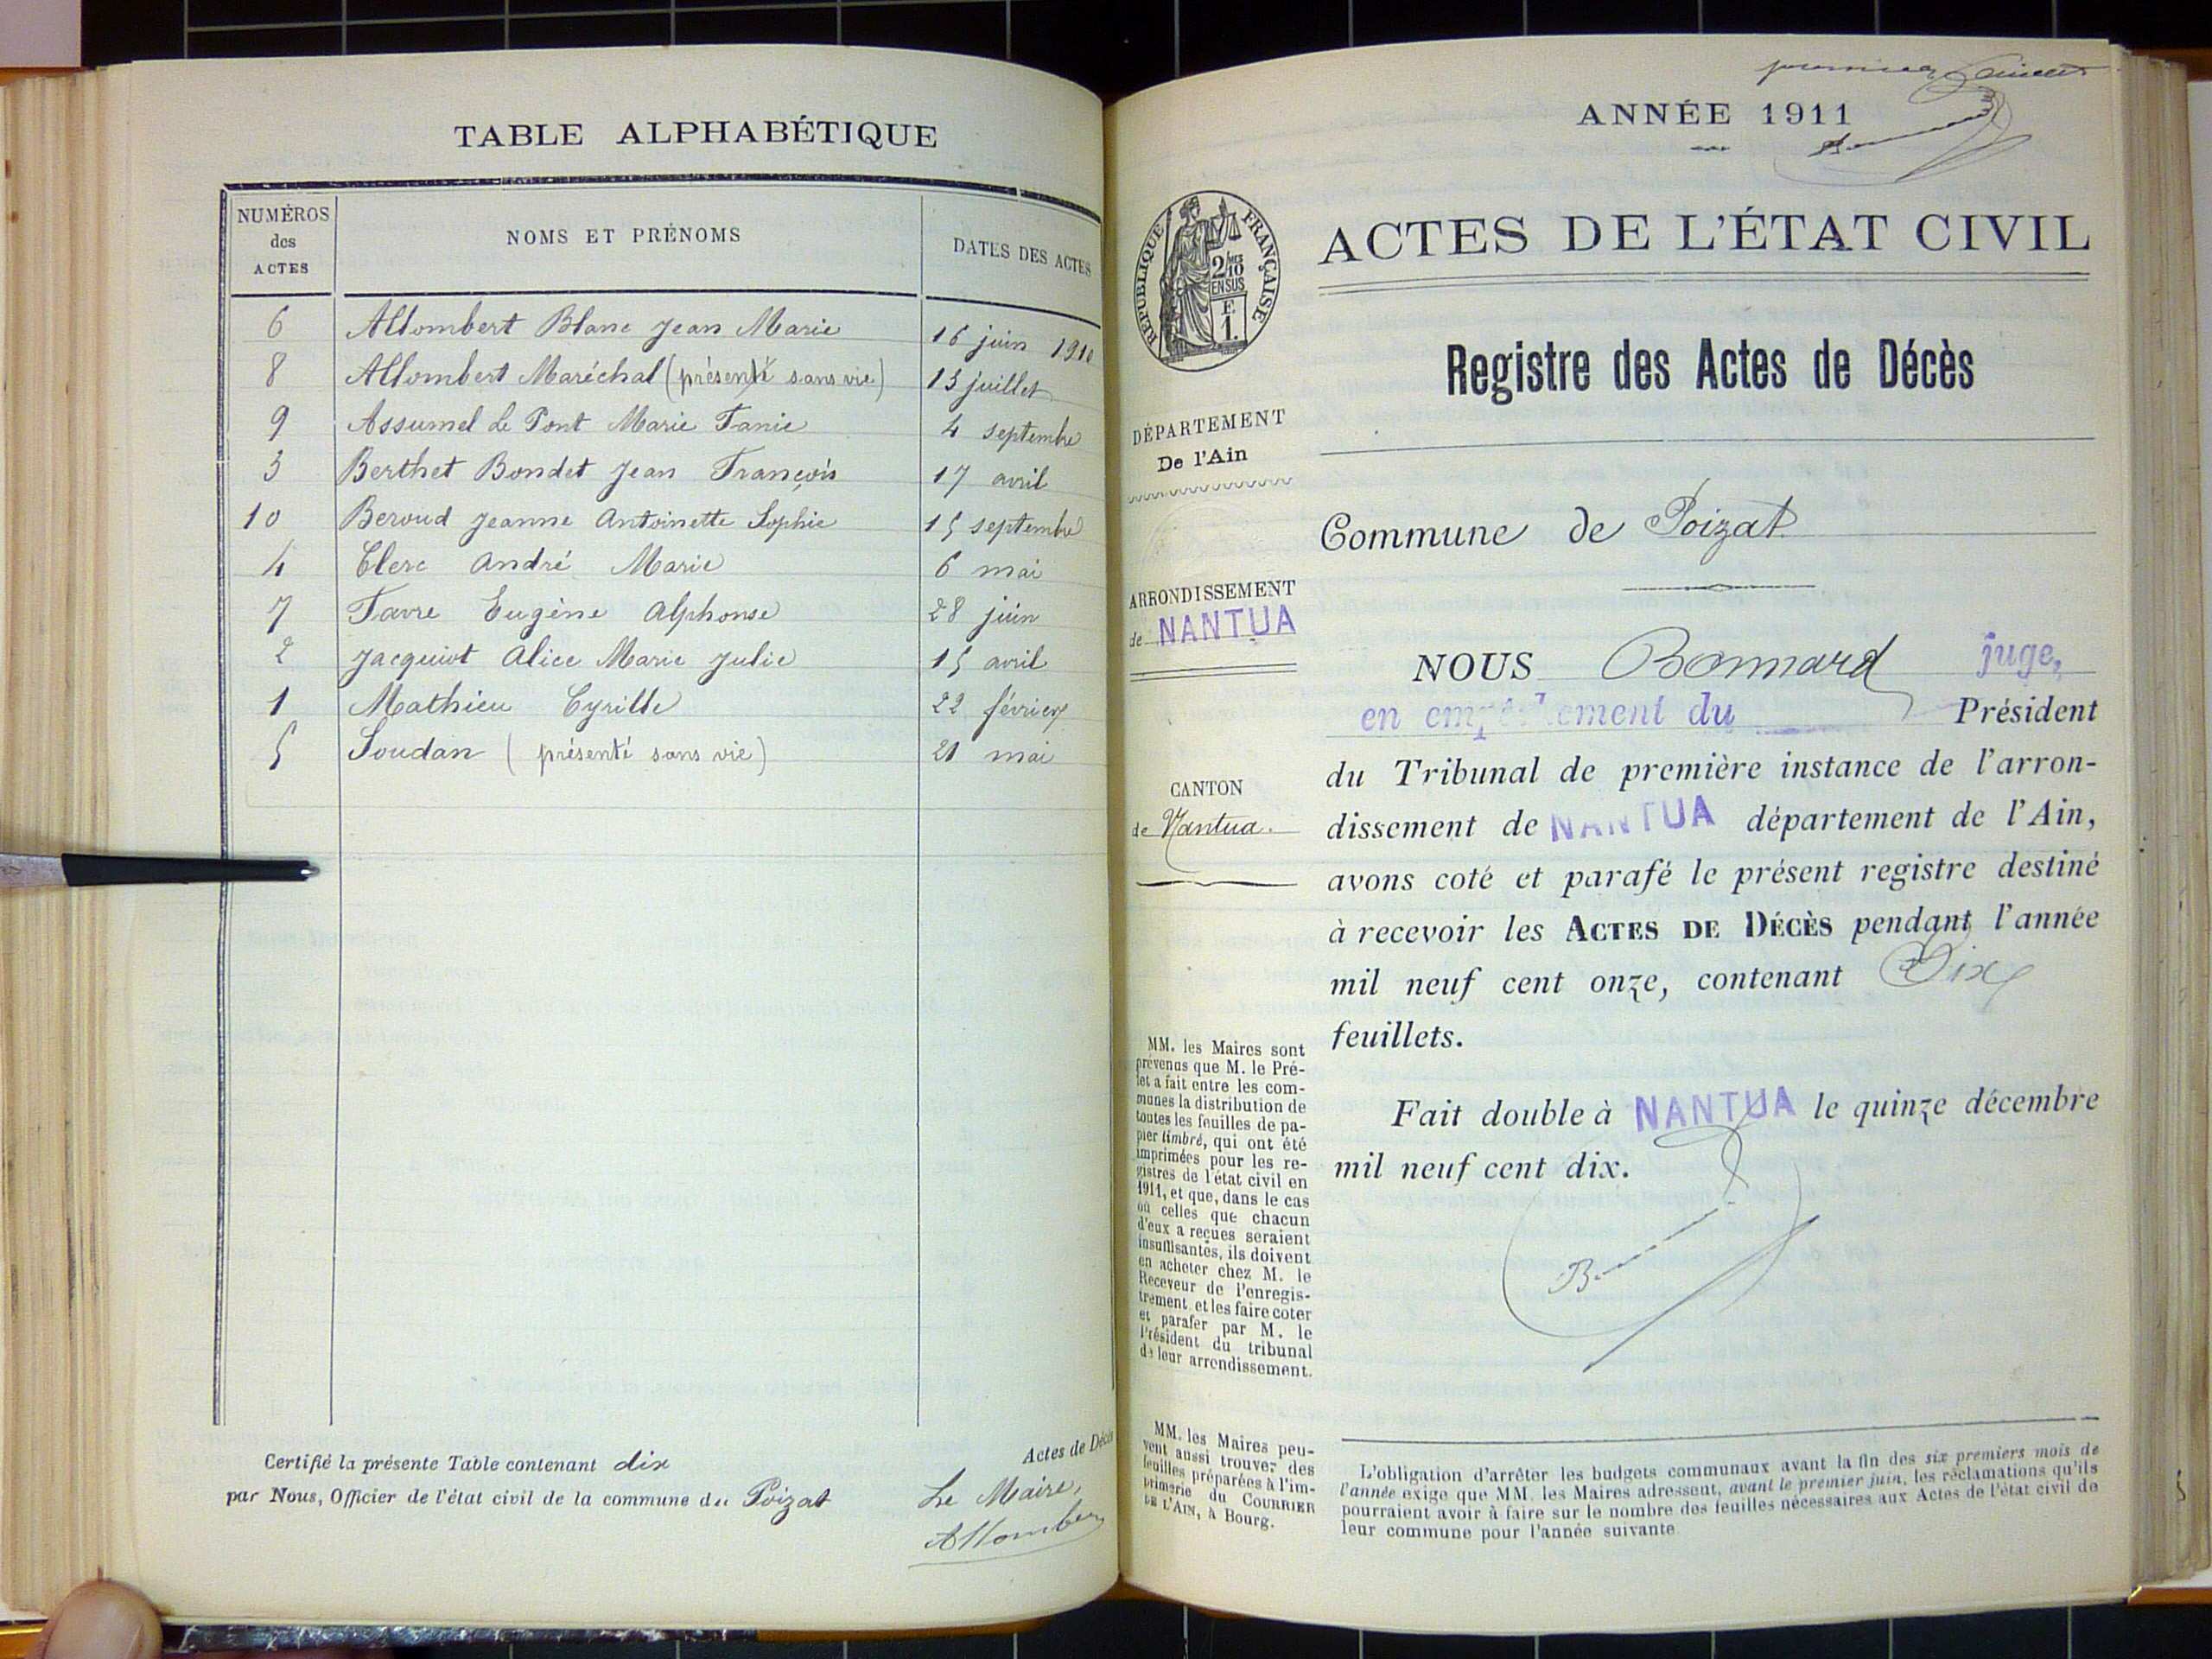 TABLE ALPHABÉTIQUE
NUMÉROS des ACTES NOMS ET PRÉNOMS DATES DES ACTES
6 Allombert Blanc Jean Marie 16 juin 1910
8 Allombert Maréchal (présenté sans vie) 13 juillet
9 Assumel le Pont Marie Fanie 4 septembre
3 Berthet Bondet Jean François 17 avril
10 Beroud Jeanne Antoinette Sophie 15 septembre
4 Clerc André Marie 6 mai
7 Favre Eugène Alphonse 28 juin
2 Jacquiot Alice Marie Julie 15 avril
1 Mathieu Cyrille 22 février
5 Soudan (présenté sans vie) 21 mai
Certifié la présente Table contenant dix
Actes de Décès
par Nous, Officier de l'état civil de la commune du Poizat
Le Maire,
Allombert
premier
ANNÉE 1911
RÉPUBLIQUE FRANÇAISE
2/10
EN SUS
E
1.
ACTES DE L'ÉTAT CIVIL
Registre des Actes de Décès
DÉPARTEMENT
De l'Ain
ARRONDISSEMENT
de NANTUA
CANTON
de Nantua.
MM. les Maires sont
prévenus que M. le Pré-
fet a fait entre les com-
munes la distribution de
toutes les feuilles de pa-
pier timbré, qui ont été
imprimées pour les re-
gistres de l'état civil en
1911, et que, dans le cas
où celles que chacun
d'eux a reçues seraient
insuffisantes, ils doivent
en acheter chez M. le
Receveur de l'enregis-
trement et les faire coter
et parafer par M. le
Président du tribunal
de leur arrondissement.
MM. les Maires peu-
vent aussi trouver des
feuilles préparées à l'im-
primerie du COURRIER
DE L'AIN, à Bourg.
Commune de Poizat
NOUS Bonnard juge,
en empêchement du Président
du Tribunal de première instance de l'arron-
dissement de NANTUA département de l'Ain,
avons coté et parafé le présent registre destiné
à recevoir les ACTES DE DÉCÈS pendant l'année
mil neuf cent onze, contenant Dix
feuillets.
Fait double à NANTUA le quinze décembre
mil neuf cent dix.
L'obligation d'arrêter les budgets communaux avant la fin des six premiers mois de
l'année exige que MM. les Maires adressent, avant le premier juin, les réclamations qu'ils
pourraient avoir à faire sur le nombre des feuilles nécessaires aux Actes de l'état civil de
leur commune pour l'année suivante